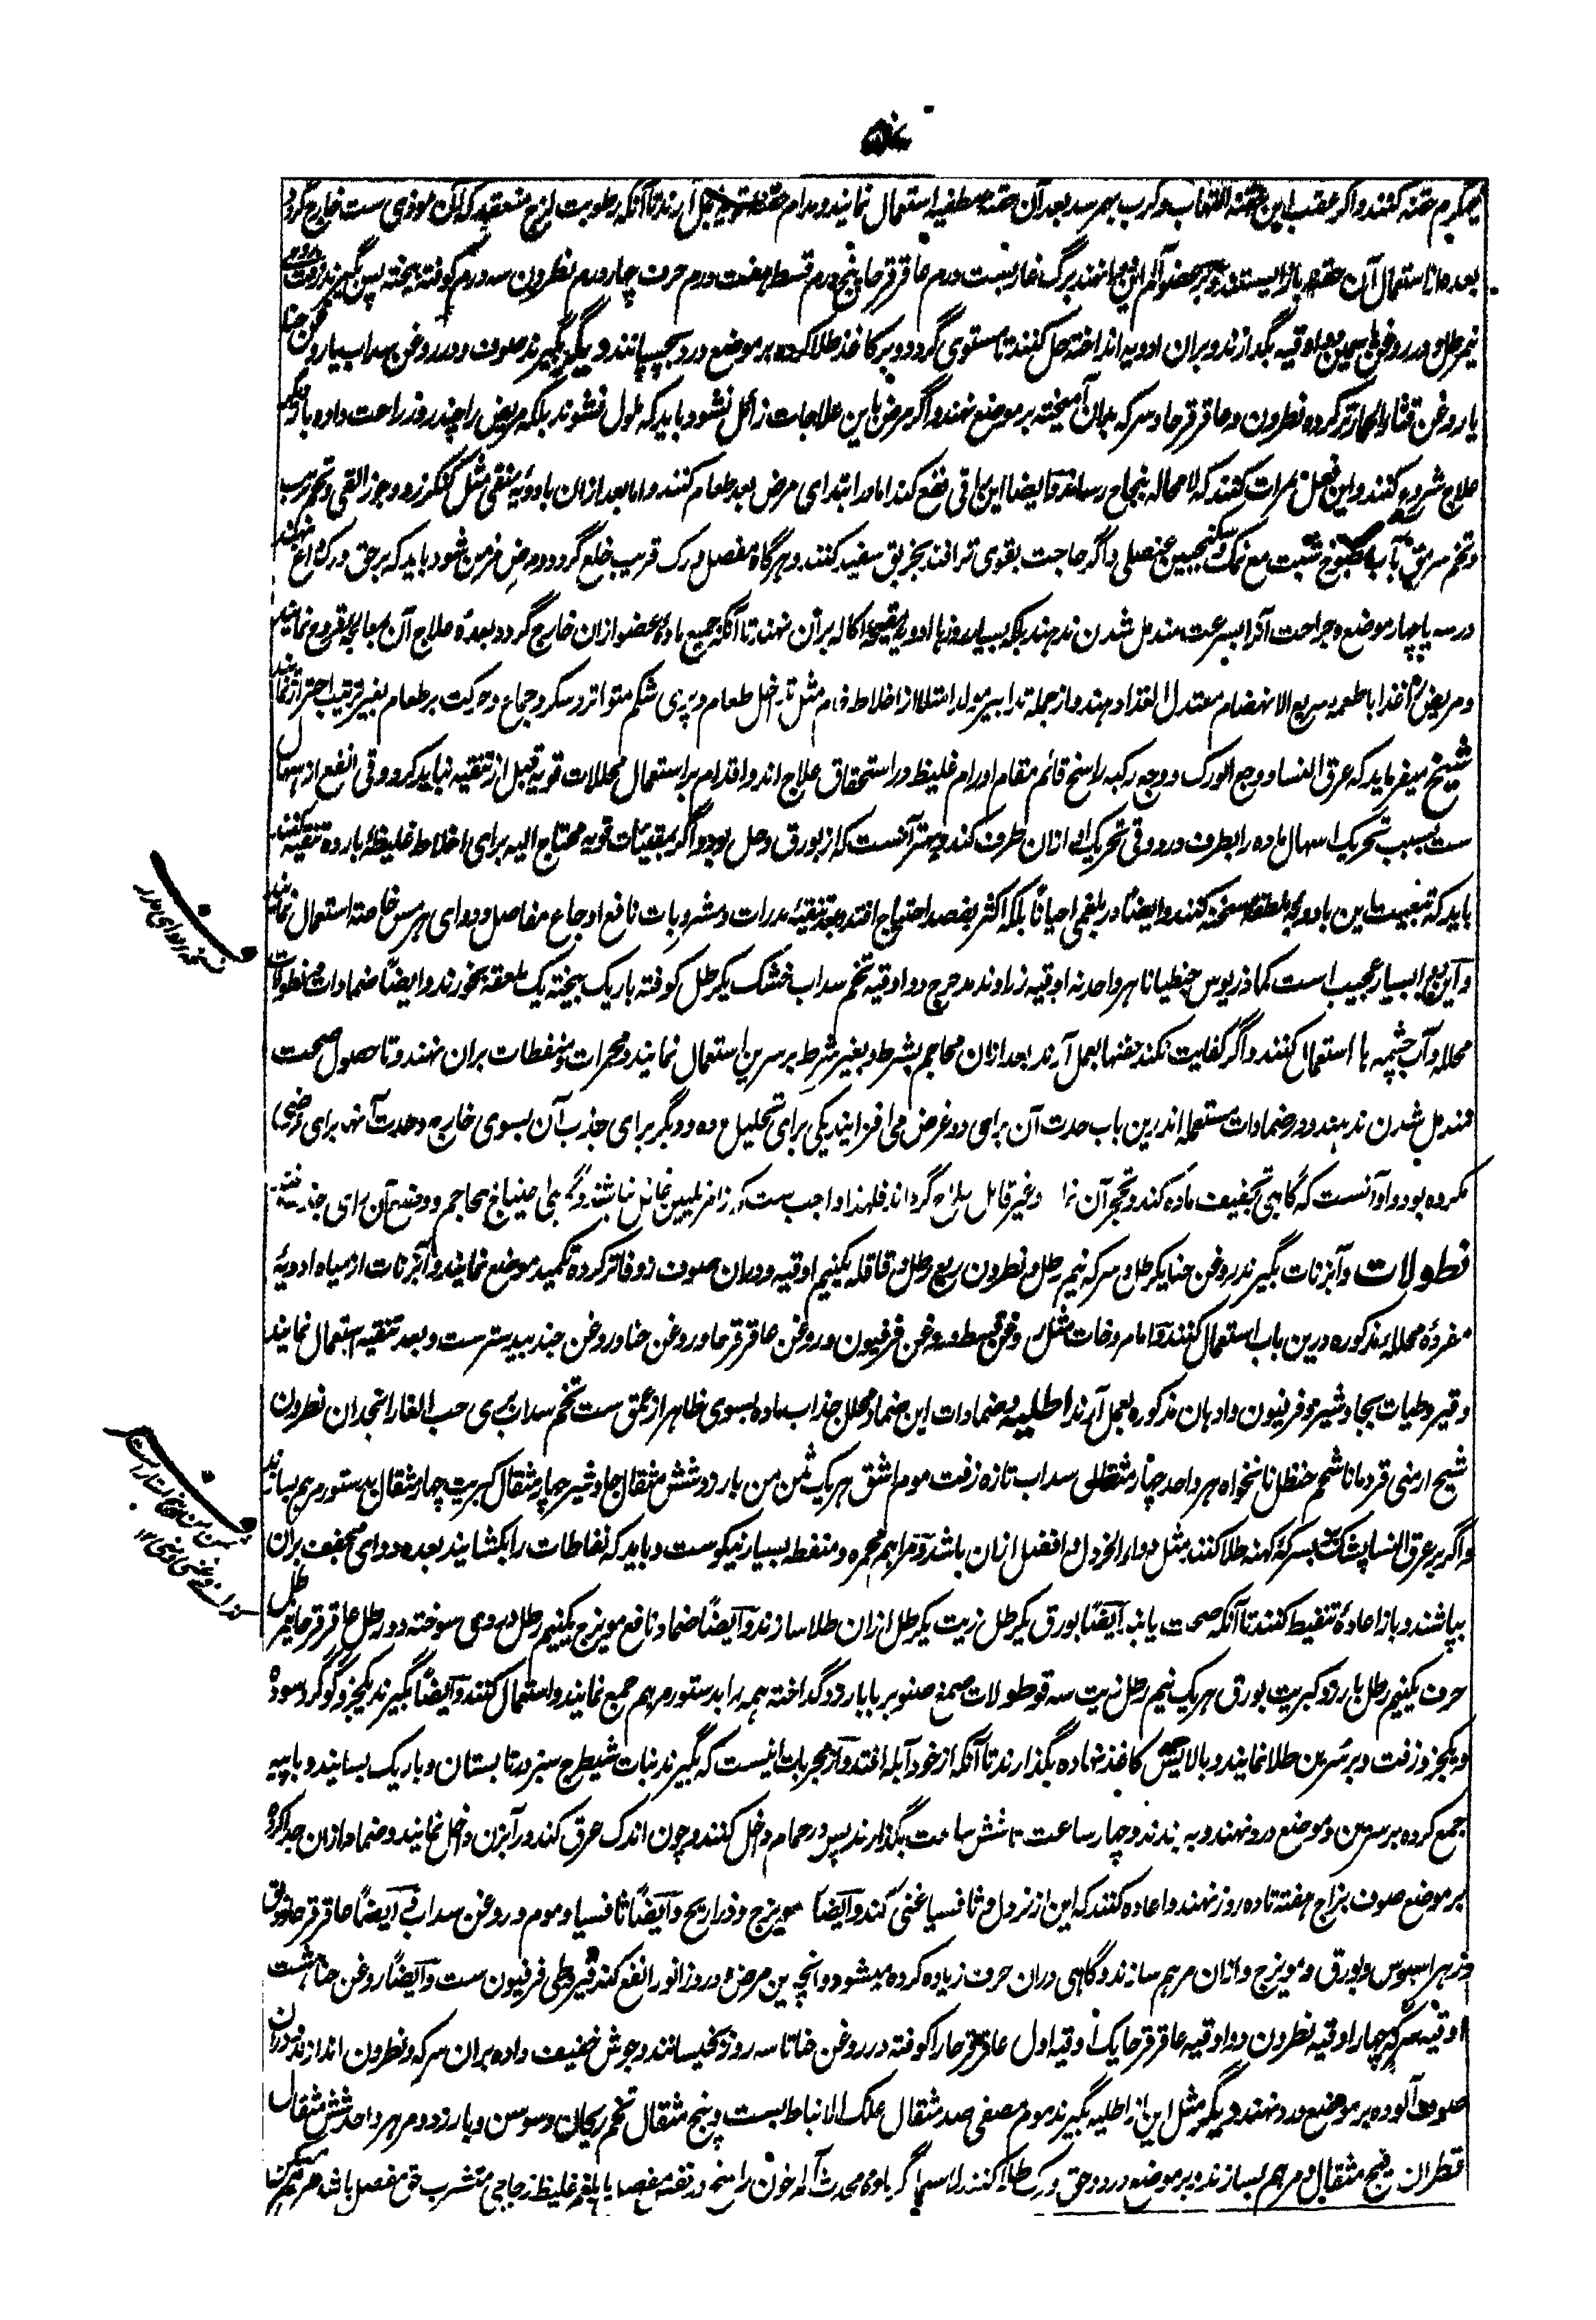 نیمگرم حقنه کنند و اگر عقب این حقنه التهاب و کرب بهم رسد بعد آن حقنه مطفیه استعمال نمایند و مدام حقنه بعمل آرند تا آنکه رطوبت لزج منعقد که آن موذی ست خارج گردد
بعده از استعمال آن حقنه باز ایستند و بر عضو الم این نهند برگ غار بست درم عاقرقرحا پنج درم قسط هفت درم حرف چهار درم نطرون سه درم کوفته بیخته پس بگیرند زفت
نیم رطل و در روغن یاسمین اوقیه بگدازند و بران ادویه انداخته حل کنند تا مستوی گردد و بر کاغذ طلا کرده بر موضع درد بچسپانند و دیگر بگیرند صوف و در روغن سداب یا روغن حنا
یا روغن قثاء الحمار تر کرده نطرون و عاقرقرحا و سرکه بدان آمیخته بر موضع نهند و اگر مرض باین علاجات زائل نشود باید که ملول نشوند بلکه مریض را چند روز راحت داده باز
علاج شروع کنند و این فعل بمرات کنند که لا محاله بنجاح رساند و ایضا این را قی نفع کند اما در ابتدای مرض بعد طعام کنند و اما بعد ازان بادویه منقی مثل کنکرزد و جوز القی و تخم ترب
و تخم سرمق بآب مطبوخ شبت مع نمک و سکنجبین عنصلی و اگر حاجت بقوی تر افتد بخربق سفید کنند و هرگاه مفصل ورک قریب خلع گردد و مرض مزمن شود باید که بر حق ورک داغ نهند
در سه یا چهار موضع و جراحت آنرا بسرعت مندمل شدن ندهند بلکه بسیار روزها ادویه مقیحه اکاله بر آن نهند تا آنکه جمیع ماده عضو ازان خارج گردد و بعده علاج آن بمعالجه قروح نمایند
و مریض را غذا باطعمه سریع الانهضام معتدل الغذا دهند و از جمله تدابیر مولد امتلا از اخلاط خام مثل تداخل طعام و پری شکم متواتر و سکر و جماع و حرکت بر طعام بغیر ترتیب احتراز نمایند
شیخ میفرماید که عرق النسا و وجع الورک و وجع رکبه راسخ قائم مقام اورام غلیظ در استحقاق علاج اند و اقدام بر استعمال محللات قویه قبل از تنقیه نباید کرد و قی انفع از اسهال
ست بسبب تحریک اسهال ماده را بطرف درد و قی تحریک او ازان طرف کند و بهتر آنست که از بورق و حل بود و اگر بمقیئات قویه محتاج الیه برای اخلاط غلیظه بارده تنقیه کنند
باید که تبعیت باین بادویه ملطفه مسخنه کنند و ایضا در بلغمی احیانا بلکه اکثر بفصد احتیاج افتد و بعد تنقیه مدرات و مشروبات نافع اوجاع مفاصل و دوای هرمس خاصته استعمال نمایند
و این دوا بسیار عجیب است کمادریوس جنطیانا هر واحد نه اوقیه زراوند مدحرج دو اوقیه تخم سداب خشک یکرطل کوفته باریک بیخته یک ملعقه بخورند و ایضا ضمادات و نطولات
محلله و آب چشمه ها استعمال کنند و اگر کفایت نکند حقنها بعمل آرند بعد ازان محاجم بشرط و بغیر شرط بر سرین استعمال نمایند و محمرات و منفطات بران نهند و تا حصول صحت
مندمل شدن ندهند و در ضمادات مستعمله اندرین باب حدت آن برای دو غرض می افزایند یکی برای تحلیل ماده و دیگر برای جذب آن بسوی خارج و حدت آنها برای غرضی
مکروه بود و او آنست که گاهی تجفیف ماده کند و تحجر آن نماید و غیر قابل علاج گرداند فلهذا واجب ست که از امر تلیین غافل نباشند و گاهی احتیاج محاجم و وضع آن برای جذب افتد
نطولات و آبزنات بگیرند روغن حنا یکرطل و سرکه نیم رطل و نطرون ربع رطل و قاقله یکنیم اوقیه و دران صوف زوفا تر کرده تکمید موضع نمایند و آبزنات از میاه ادویه
مفرده محلله مذکوره درین باب استعمال کنند و اما مروخات مثل روغن قسط و روغن فرفیون و روغن عاقرقرحا و روغن حنا و روغن جندبیدستر ست و بعد تنقیه استعمال نمایند
و قیروطیات بجاوشیر و فرفیون و ادهان مذکوره بعمل آرند اطلیه و ضمادات این ضماد محلل جذاب ماده بسوی ظاهر از عمق ست تخم سداب بری حب الغار انجدان نطرون
شیح ارمنی قردمانا شحم حنظل نانخواه هر واحد چهار مثقالی سداب تازه زفت موم اشق هر یک ثمن من بارزد شش مثقال جاوشیر چهار مثقال کبریت چهار مثقال بدستور مرهم سازند
و اگر بر عرق النسا پشک بز بسرکه کهنه طلا کنند مثل دواء الخردل و افضل ازان باشد و مراهم محمره و منفطه بسیار نیکوست و باید که نفاطات را بکشایند بعده دوای مجفف بران
بپاشند و باز اعاده تنفیط کنند تا آنکه صحت یابند ایضا بورق یکرطل زیت یکرطل ازان طلا سازند و ایضا ضماد نافع مویزج یکنیم رطل دردی سوخته دو رطل عاقرقرحا نیم رطل
حرف یکنیم رطل بارزد و کبریت بورق هر یک نیم رطل زیت سه قوطولات صمغ صنوبر با بارزد گداخته همه را بدستور مرهم جمع نمایند و استعمال کنند و ایضا بگیرند یکجزو گوگرد سوده
و یکجزو زفت و بر سرین طلا نمایند و بالایش کاغذ نهاده بگذارند تا آنکه از خود آبله افتد و از مجربات اینست که بگیرند نبات شیطرج سبز در تابستان و باریک بسایند و با پیه
جمع کرده بر سرین و موضع درد نهند و به بندند و چهار ساعت تا شش ساعت بگذارند پس در حمام داخل کنند و چون اندک عرق کند در آبزن داخل نمایند و ضماد ازان جدا کرده
بر موضع صوف بزاج هفته تا ده روز نهند و اعاده کنند که این از خردل و ثافسیا غنی کند و ایضا مویزج و ذراریح و ایضا ثافسیا و موم و روغن سداب و ایضا عاقرقرحا
و زهر اسیوس و بورق و مویزج و ازان مرهم سازند و گاهی دران حرف زیاده کرده میشود و آنچه این مرض و درد زانو را نفع کند قیروطی فرفیون ست و ایضا روغن حنا هشت
اوقیه سرکه چهار اوقیه نطرون دو اوقیه عاقرقرحا یک اوقیه اول عاقرقرحا را کوفته در روغن حنا تا سه روز بخیسانند و جوش خفیف داده بران سرکه و نطرون اندازند و دران
صوف آلوده بر موضع درد نهند و دیگر مثل این از اطلیه بگیرند موم مصفی صد مثقال علک الانباط بست و پنج مثقال تخم ریحان و سوسن و بارزد و مر هر واحد شش مثقال
قطران پنج مثقال و مرهم بسازند و بر موضع درد و حق ورک طلا کنند لا سیما اگر ماده محدث آن خون راسخ در نفس مفصل یا بلغم غلیظ زجاجی متشرب حق مفصل باشد
نسخه دوای مدر